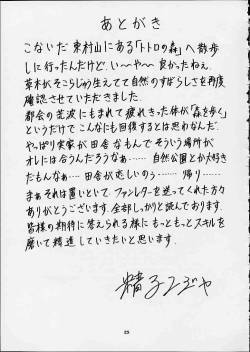 あとがき
こないだ東村山にある「トトロの森」へ散歩
しに行ったんだけど、い〜や〜良かったねぇ
草木がそこらじゅう生えてて自然のすばらしさを再度
確認させていただきました。
都会の荒波にもまれて疲れきった体が「森を歩く」
というだけでこんなにも回復するとは思わなんだ。
やっぱり実家が田舎なもんでそういう場所が
オレには合うんだろうなぁ……自然公園とか大好き
だもんなぁ…田舎が恋しいのぅ……帰り……
まぁそれは置いといて ファンレターを送ってくれた方々
ありがとうございます。全部しっかりと読んでおります。
皆様の期待に答えられる様に もっともっとスキルを
磨いて精進していきたいと思います。
25